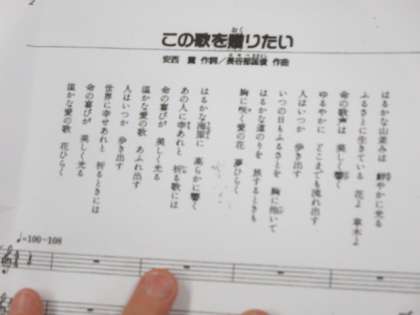 2
おく
この歌を贈りたい
安西 薫 作詞／長谷部匡俊 作曲
はるかな山並みは 鮮やかに光る
ふるさとに生きている 花よ 草木よ
命の歌声は 美しく響く
ゆるやかに どこまでも流れ出す
人はいつか 歩き出す
いつの日もふるさとを 胸に抱いて
はるかな道のりを 旅するときも
胸に咲く愛の花 夢ひらく
はるかな海原に 高らかに響く
あの人に幸あれと 祈る歌には
命の喜びが 美しく光る
温かな愛の歌 あふれ出す
人はいつか 歩き出す
世界に幸せあれと 祈るときには
命の喜びが 美しく光る
温かな愛の歌 花ひらく
♩=100~108